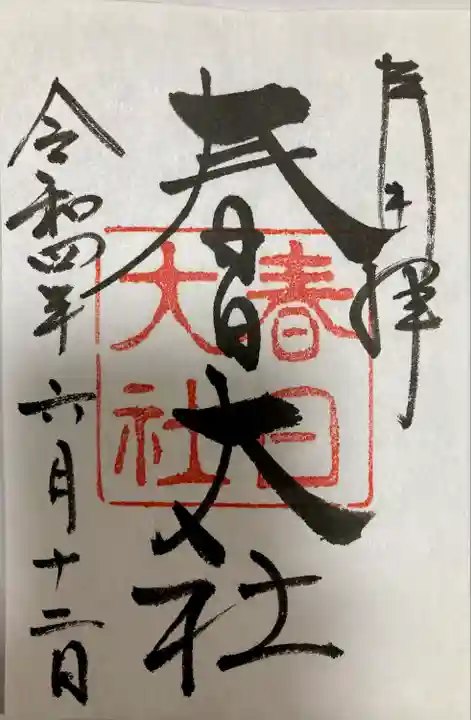 奉拝
春日大社
春日
大社
令和四年六月十二日